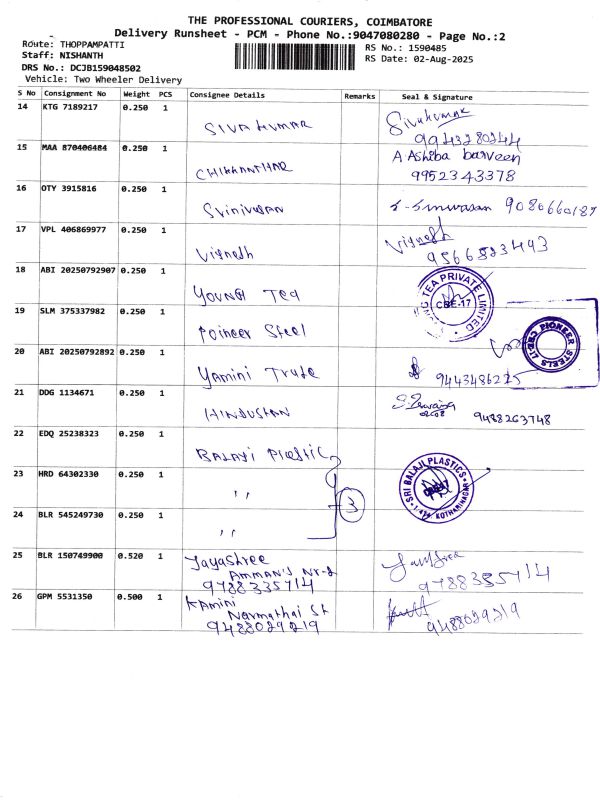 THE PROFESSIONAL COURIERS, COIMBATORE
Delivery Runsheet - PCM - Phone No.:9047080280 - Page No.:2
Route: THOPPAMPATTI
Staff: NISHANTH
DRS No.: DCJB159048502
Vehicle: Two Wheeler Delivery
RS No.: 1590485
RS Date: 02-Aug-2025
S No Consignment No Weight PCS Consignee Details Remarks Seal & Signature
14 KTG 7189217 0.250 1 SIVA KUMAR Sivakumar
9943280244
15 MAA 870406484 0.250 1 CHIKKANTHAR A Ashiba barveen
9952343378
16 OTY 3915816 0.250 1 Srinivasan S-Srinivasan 9080660187
17 VPL 406869977 0.250 1 Vignesh Vignesh
9566523493
18 ABI 20250792907 0.250 1 YOUNG Tea
TEA PRIVATE LIMITED CBE-17
19 SLM 375337982 0.250 1 Poineer Steel
CBE PIONEER STEELS
20 ABI 20250792892 0.250 1 Yamini Trade 9443486225
21 DDG 1134671 0.250 1 HINDUSTAN 9488263748
22 EDQ 25238323 0.250 1 BALAJI Plastic
SRI BALAJI PLASTICS KOTHARINAGAR
23 HRD 64302330 0.250 1 ,, 3
24 BLR 545249730 0.250 1 ,,
25 BLR 150749900 0.520 1 Jayashree
AMMAN'S Nr-2
9788335714 9788335714
26 GPM 5531350 0.500 1 Kamini
Narmathai St
9488029219 9488029219